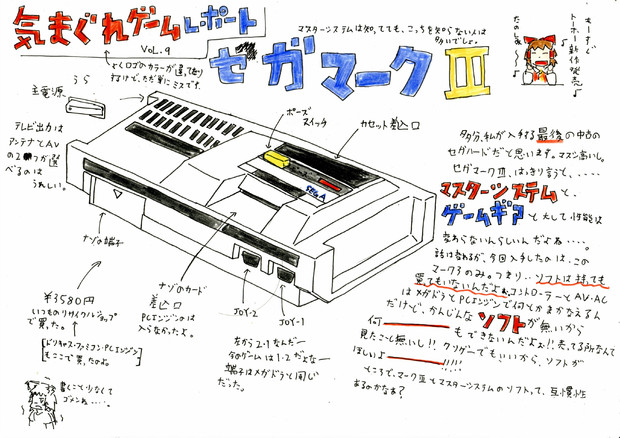 気まぐれゲームレポート
VOL.9
マスターシステムは知ってても、こっちを知らない人は
多いでしょ。
セガマークⅢ
主電源
うら
テレビ出力は
アンテナとAV
の2つが選
べるのは
うれしい。
ポーズ
スイッチ
カセット差込口
SEGA
多分、私が入手する最後の中古の
セガハードだと思います。マスシス高いし。
セガマークⅢ、はっきり言うと、・・・・
マスターシステムと、
ゲームギアと大して性能は
変わらないんらしいんだよね・・・・。
話は変わるが、今回入手したのは、この
マーク3のみ。つまり・・ソフトは持っても
買てもいないんだよぉ。コントローラーとAV・AC
はメガドラとPCエンジンで何とかまかなえるん
だけど、かんじんなソフトが無いから
何
もできないんだよぉ!!売ってる所なんて
見たこと無いし!!クソゲーでもいいから、ソフトが
ほしいよ
!!!!
ところで、マークⅢとマスターシステムのソフトって、互換性
あるのかなぁ?
ナゾの端子
ナゾのカード
差込口
PCエンジンのは
入らなかったよ。
JOY-2
JOY-1
左から2・1なんだー
今のゲームは1・2だよなー
端子はメガドラと同じ
だった。
¥3580円
いつものリサイクルショップ
で買た。
ドリキャス・ファミコン・PCエンジン
もここで買たのよ。
書くこと少なくて
ゴメンネ・・・・。